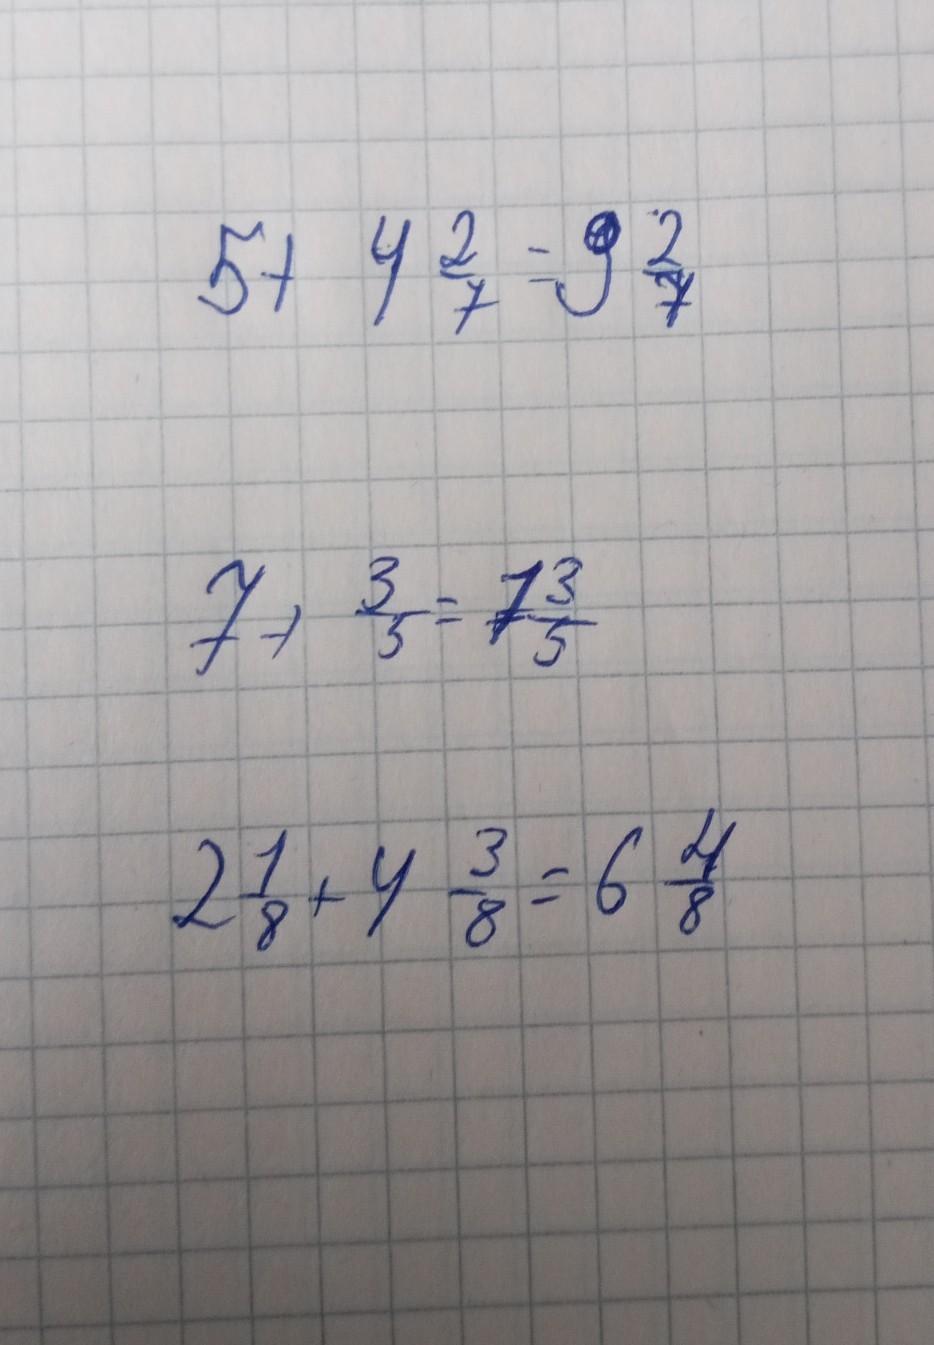 5 + 4 2/7 = 9 2/7
7 + 3/5 = 7 3/5
2 1/8 + 4 3/8 = 6 4/8